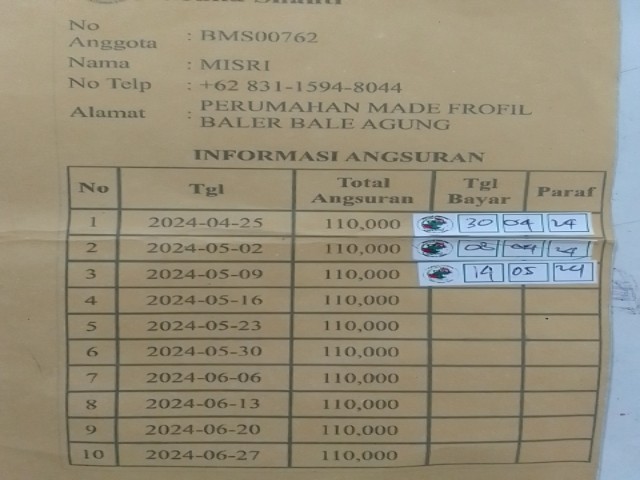 No Anggota : BMS00762
Nama : MISRI
No Telp : +62 831-1594-8044
Alamat : PERUMAHAN MADE FROFIL
BALER BALE AGUNG
INFORMASI ANGSURAN
No Tgl Total Angsuran Tgl Bayar Paraf
1 2024-04-25 110,000 30 04 24
2 2024-05-02 110,000 04 24
3 2024-05-09 110,000 14 05 24
4 2024-05-16 110,000
5 2024-05-23 110,000
6 2024-05-30 110,000
7 2024-06-06 110,000
8 2024-06-13 110,000
9 2024-06-20 110,000
10 2024-06-27 110,000